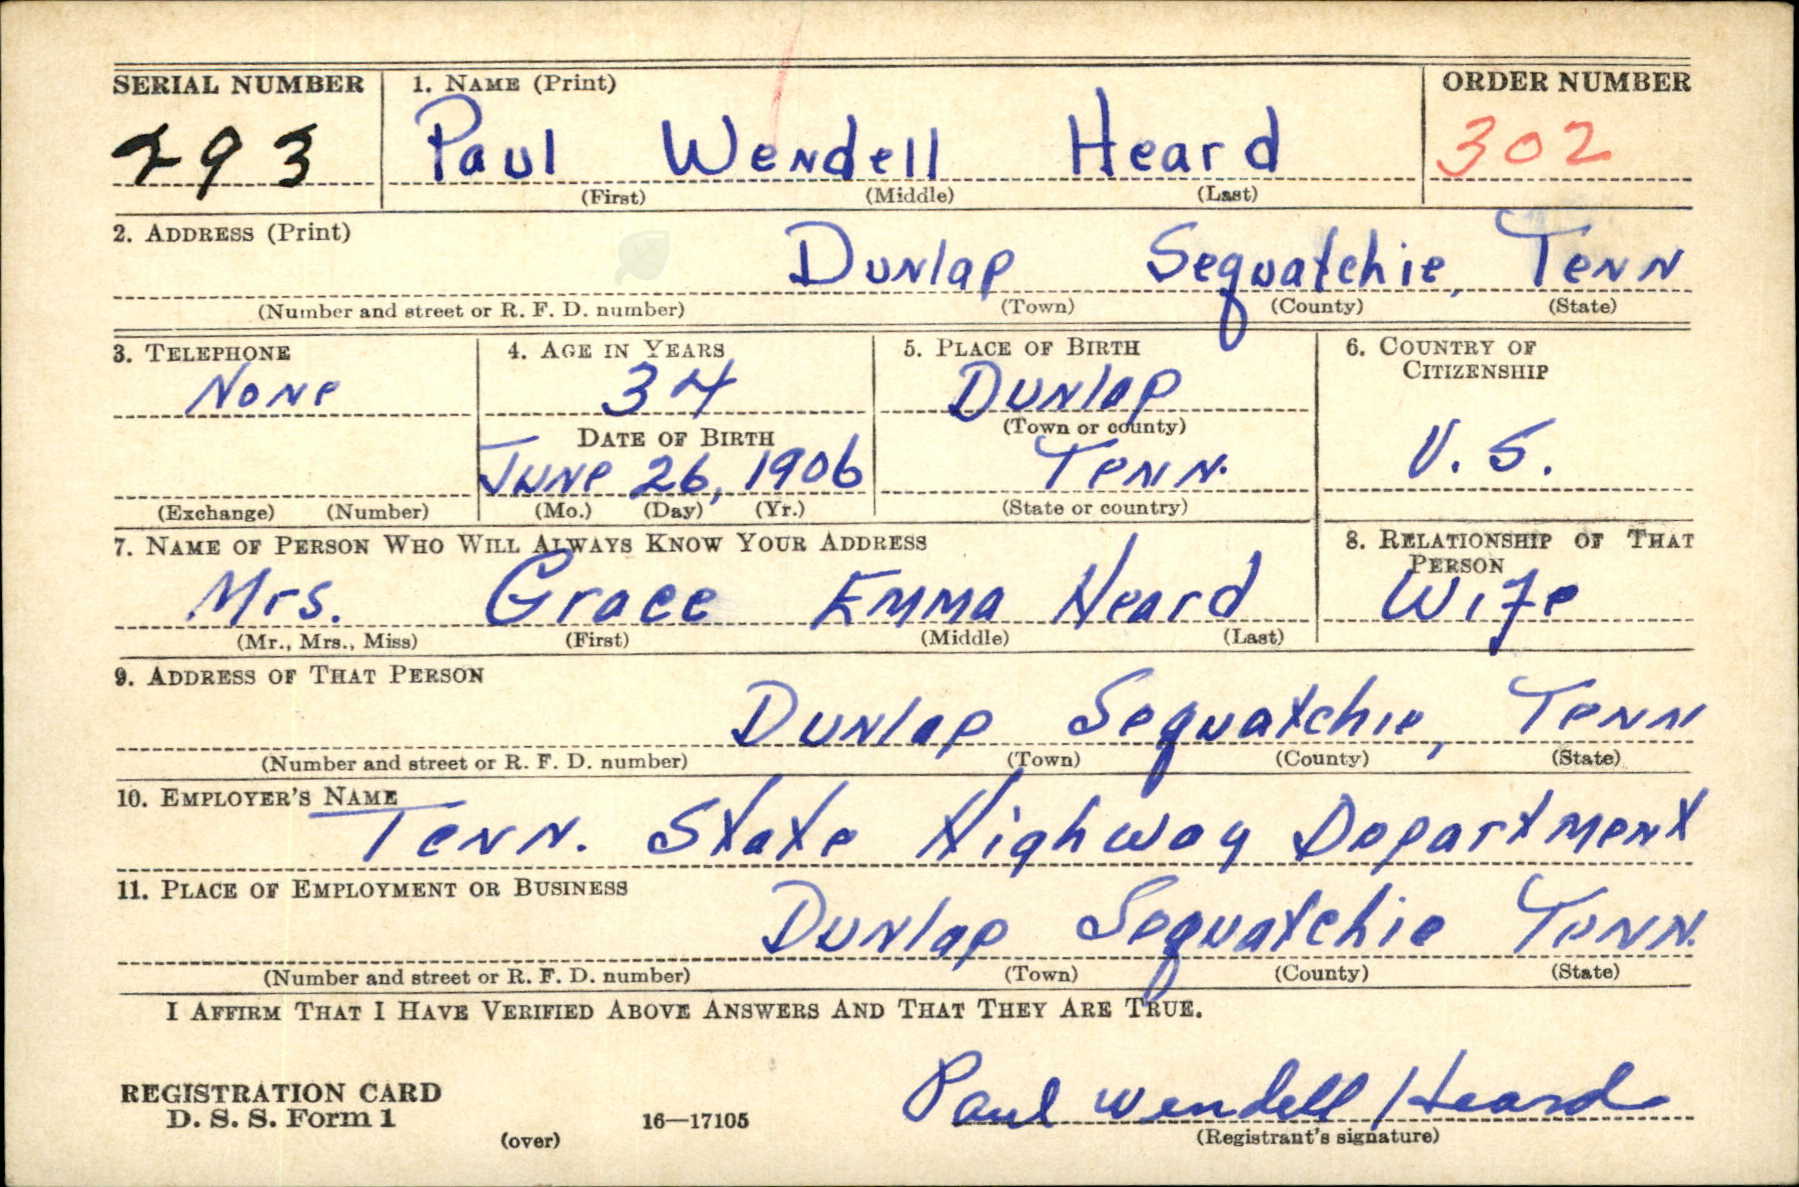 SERIAL NUMBER 1. NAME (Print) ORDER NUMBER
293 Paul Wendell Heard 302
(First) (Middle) (Last)
2. ADDRESS (Print)
Dunlap Sequatchie, Tenn
(Number and street or R. F. D. number) (Town) (County) (State)
3. TELEPHONE 4. AGE IN YEARS 5. PLACE OF BIRTH 6. COUNTRY OF CITIZENSHIP
None 34 Dunlap
(Town or county)
DATE OF BIRTH
June 26, 1906 Tenn. U. S.
(Exchange) (Number) (Mo.) (Day) (Yr.) (State or country)
7. NAME OF PERSON WHO WILL ALWAYS KNOW YOUR ADDRESS 8. RELATIONSHIP OF THAT PERSON
Mrs. Grace Emma Heard Wife
(Mr., Mrs., Miss) (First) (Middle) (Last)
9. ADDRESS OF THAT PERSON
Dunlap Sequatchie, Tenn
(Number and street or R. F. D. number) (Town) (County) (State)
10. EMPLOYER'S NAME
Tenn. State Highway Department
11. PLACE OF EMPLOYMENT OR BUSINESS
Dunlap Sequatchie Tenn.
(Number and street or R. F. D. number) (Town) (County) (State)
I AFFIRM THAT I HAVE VERIFIED ABOVE ANSWERS AND THAT THEY ARE TRUE.
REGISTRATION CARD
D. S. S. Form 1 16—17105 Paul Wendell Heard
(over) (Registrant's signature)